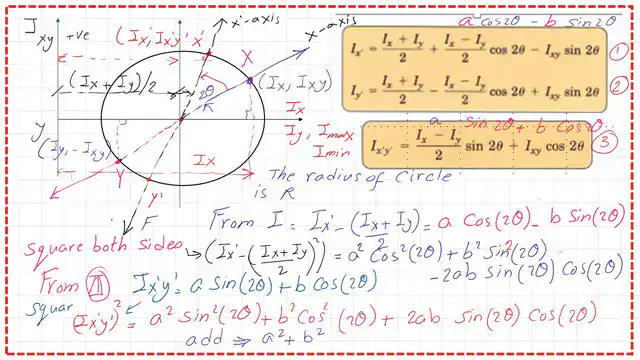 x'-axis
x-axis
a cos2θ - b sin2θ
I_xy +ve
(I_x', I_x'y') X'
X
(I_x+I_y)/2
2θ
R
(I_x, I_xy)
I_x
I_y, I_max
I_min
y
(I_y, -I_xy)
I_x
Y
y'
F
I_x' = (I_x + I_y)/2 + (I_x - I_y)/2 cos 2θ - I_xy sin 2θ
1
I_y' = (I_x + I_y)/2 - (I_x - I_y)/2 cos 2θ + I_xy sin 2θ
2
a sin2θ + b cos2θ
I_x'y' = (I_x - I_y)/2 sin 2θ + I_xy cos 2θ
3
The radius of circle
is R
From I = I_x' - (I_x + I_y)/2 = a Cos(2θ) - b Sin(2θ)
square both sides (I_x' - (I_x + I_y)/2)² = a² Cos²(2θ) + b² Sin²(2θ)
- 2ab Sin(2θ) Cos(2θ)
From II I_x'y' = a Sin(2θ) + b Cos(2θ)
squar
(I_x'y')² = a² Sin²(2θ) + b² Cos²(2θ) + 2ab Sin(2θ) Cos(2θ)
add ⇒ a² + b²